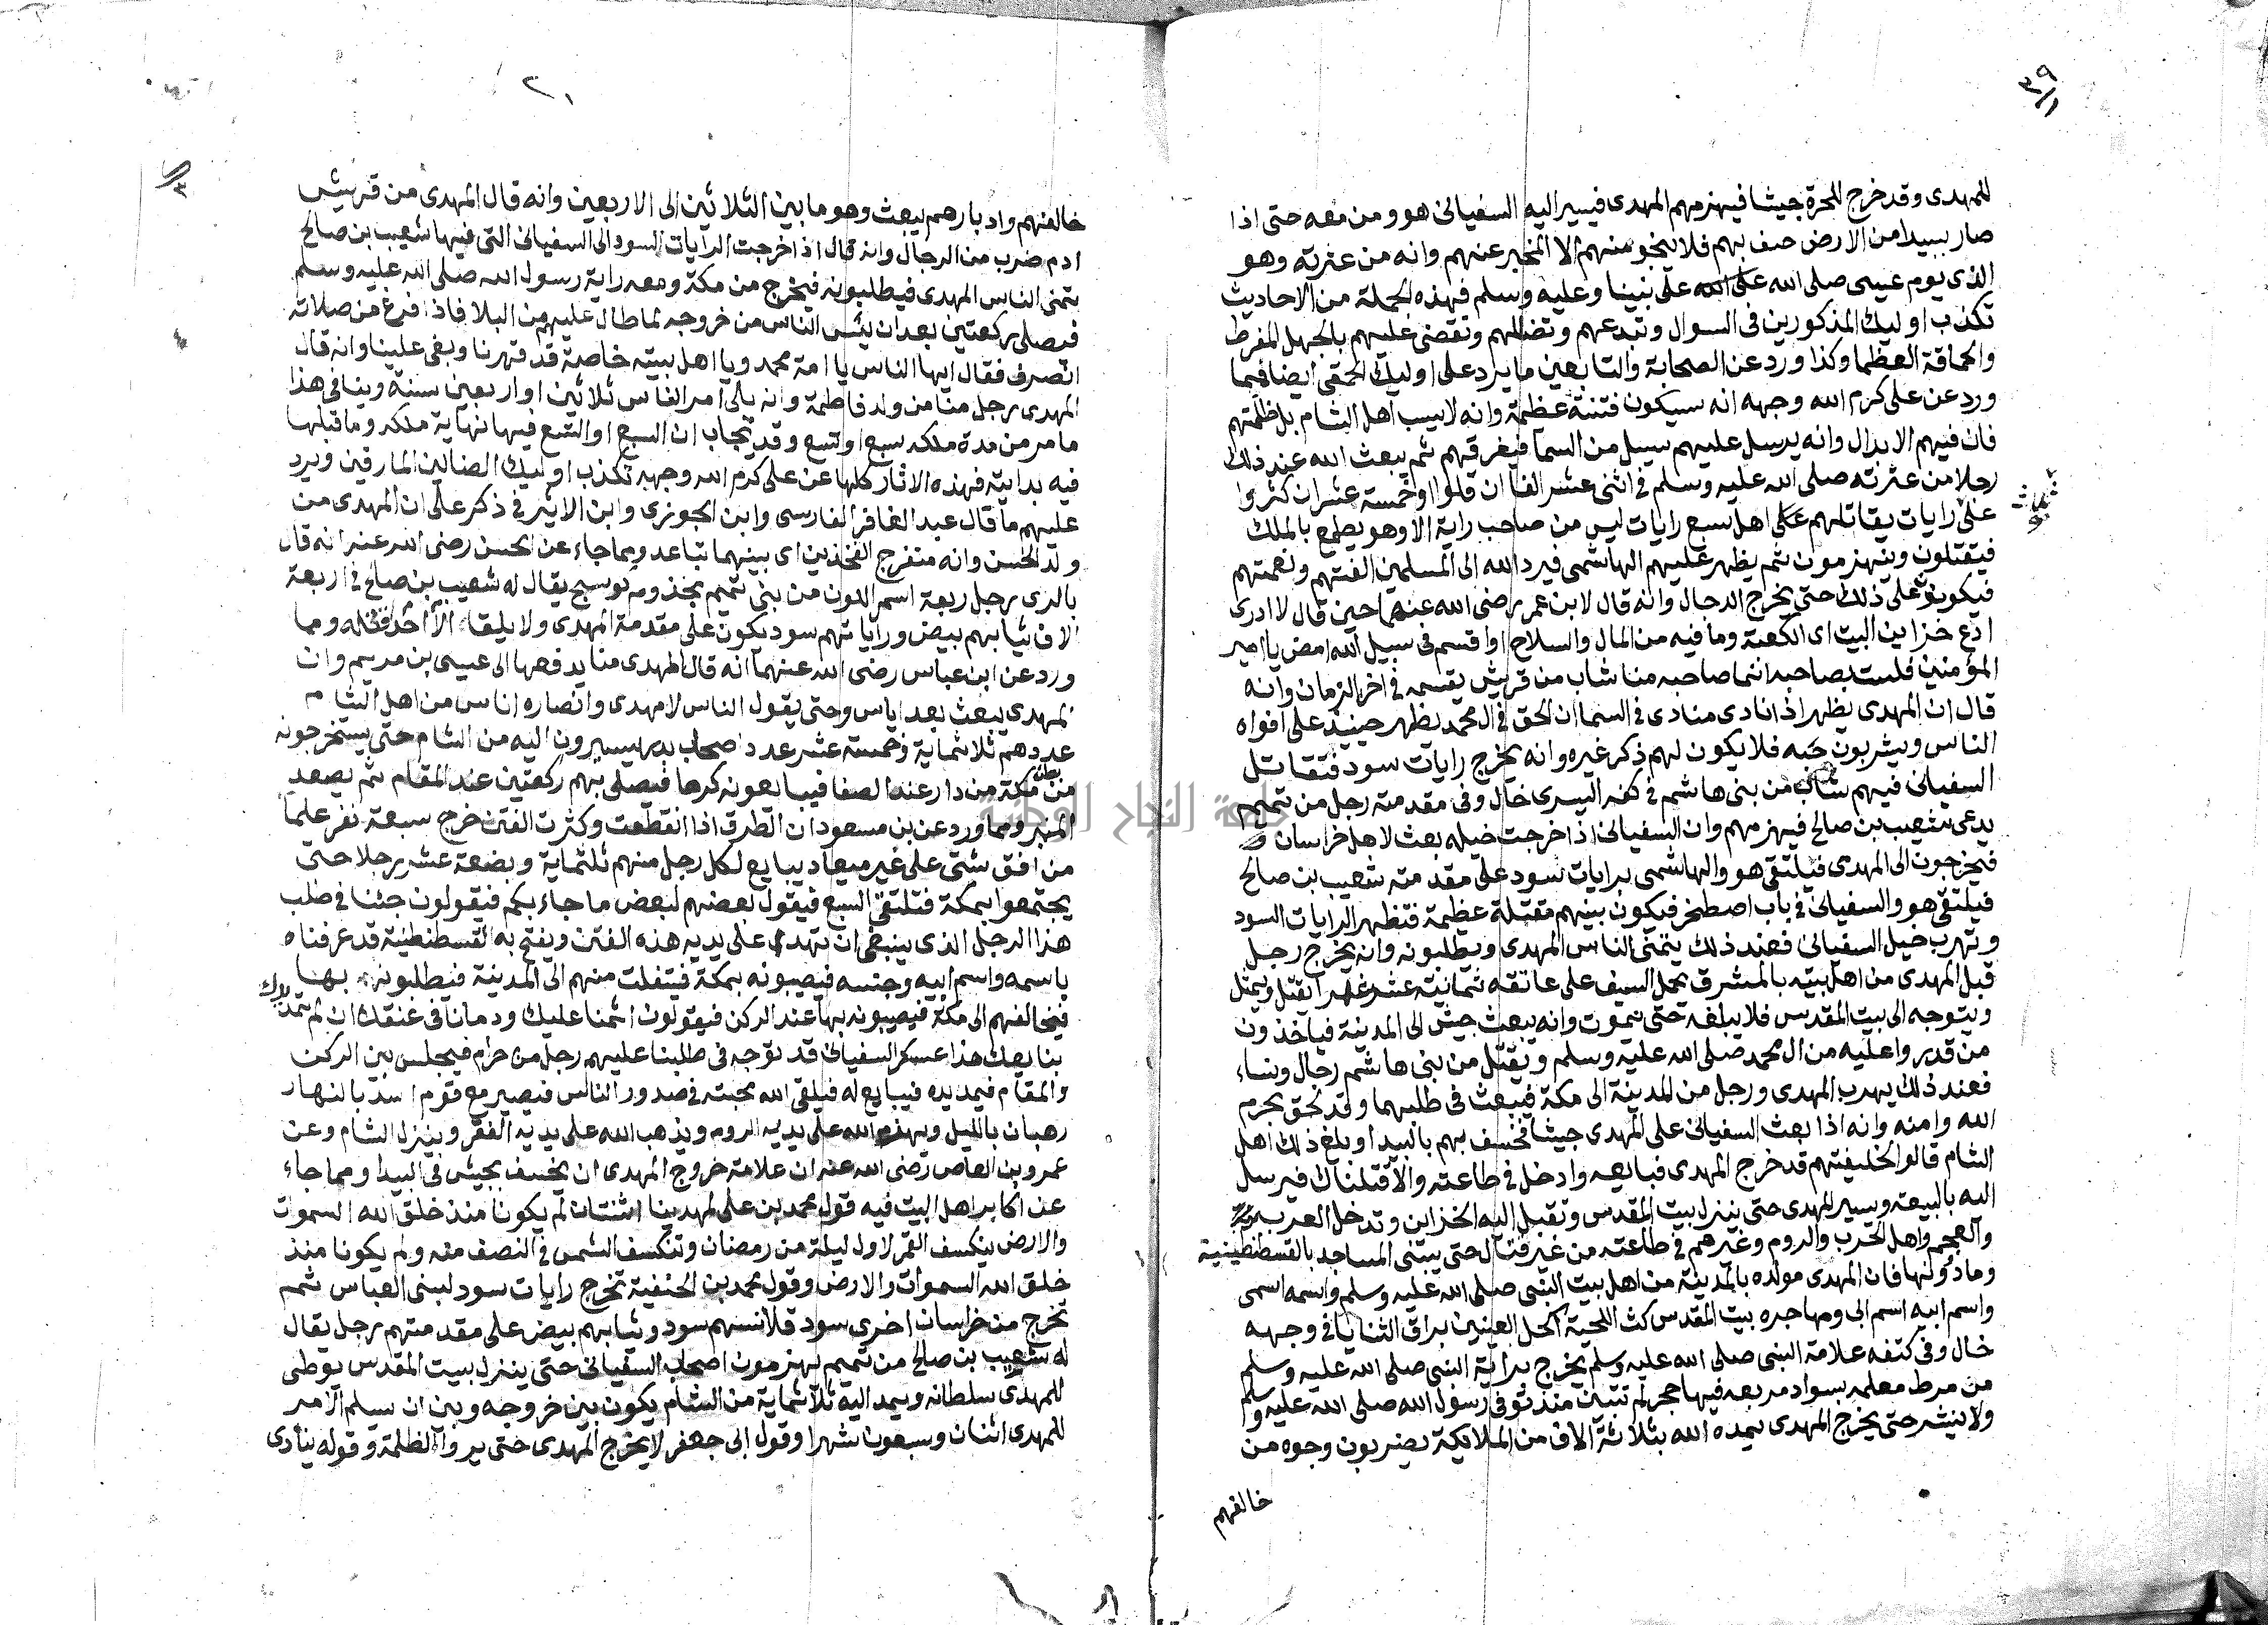 ٣٩
١
للمهدى وقد خرج للحرة جيشا فيهزمهم المهدى فيسير اليه السفيانى هو ومن معه حتى اذا
صار ببيدا من الارض خسف بهم فلا ينجو منهم الا المخبر عنهم وانه من عترته وهو
الذى يوم عيسى صلى الله على نبينا وعليه وسلم فهذه الجملة من الاحاديث
تكذب اوليك المذكورين فى السوال وتبدعهم وتضللهم وتقضى عليهم بالجهل المفرط
والحماقة العظما وكذا ورد عن الصحابة والتابعين ما يرد على اوليك الحمقى ايضا فيما
ورد عن على كرم الله وجهه انه سيكون فتنة عظيمة وانه لا يسب اهل الشام بل ظلمتهم
فان فيهم الابدال وانه يرسل عليهم سيل من السما فيغرقهم ثم يبعث الله عند ذلك
رجلا من عترته صلى الله عليه وسلم فى اثنى عشر الفا ان قلوا او خمسة عشر ان كثروا
على رايات يقاتلهم على اهل سبع رايات ليس من صاحب راية الا وهو يطمع بالملك
فيقتلون وينهزمون ثم يظهر عليهم الهاشمى فيرد الله الى المسلمين الفتهم ونعمتهم
فيكونو على ذلك حتى يخرج الدجال وانه قال لابن عمر رضى الله عنهما حين قال لا ادرى
ادع خزاين البيت اى الكعبة وما فيه من المال والسلاح او اقسم فى سبيل الله امض يا امير
المؤمنين فلست بصاحبه انما صاحبه منا شاب من قريش يقسمه فى اخر الزمان وانه
قال ان المهدى يظهر اذا نادى منادى فى السما ان الحق فى ال محمد يظهر حينيذ على افواه
الناس ويشربون حبه فلا يكون لهم ذكر غيره وانه يخرج رايات سود فتقاتل
السفيانى فيهم شاب من بنى هاشم فى كفه اليسرى خال وفى مقدمته رجل من تميم
يدعى شعيب بن صالح فيهزمهم وان السفيانى اذا خرجت خيله بعث لاهل خراسان
فيخرجون الى المهدى فيلتقى هو والهاشمى برايات سود على مقدمته شعيب بن صالح
فيلتقى هو والسفيانى فى باب اصطخر فيكون بينهم مقتلة عظيمة فتظهر الرايات السود
وتهرب خيل السفيانى فعند ذلك يتمنى الناس المهدى ويطلبونه وانه يخرج رجل
قبل المهدى من اهل بيته بالمشرق يحمل السيف على عاتقه ثمانية عشر شهرا يقتل ويمثل
ويتوجه الى بيت المقدس فلا يبلغه حتى يموت وانه يبعث جيش الى المدينة فياخذون
من قدروا عليه من ال محمد صلى الله عليه وسلم ويقتل من بنى هاشم رجال ونساء
فعند ذلك يهرب المهدى ورجل من المدينة الى مكة فيبعث فى طلبهما وقد لحق بحرم
الله وامنه وانه اذا بعث السفيانى على المهدى جيشا فخسف بهم بالبيدا وبلغ ذلك اهل
الشام قالو لخليفتهم قد خرج المهدى فبايعه وادخل فى طاعته والا قتلناك فيرسل
اليه بالبيعة ويسير المهدى حتى ينزل بيت المقدس وتقبل اليه الخزاين وتدخل العرب
والعجم واهل الحرب والروم وغيرهم فى طاعته من غير قتال حتى يبتنى المساجد بالقسطنطينية
وما دونها فان المهدى مولده بالمدينة من اهل بيت النبى صلى الله عليه وسلم واسمه اسمى
واسم ابيه اسم ابى ومهاجره بيت المقدس كث اللحية اكحل العينين براق الثنايا فى وجهه
خال وفى كتفه علامة النبى صلى الله عليه وسلم يخرج براية النبى صلى الله عليه وسلم
من مرط معلمه بسواد مربعه فيها حجر لم تنشر منذ توفى رسول الله صلى الله عليه وسلم
ولا ينشر حتى يخرج المهدى يمده الله بثلاثة الاف من الملايكة يضربون وجوه من
خالفهم
٢١
خالفهم وادبارهم يبعث وهو ما بين الثلاثين الى الاربعين وانه قال المهدى من قريش
ادم ضرب من الرجال وانه قال اذا خرجت الرايات السود الى السفيانى التى فيها شعيب بن صالح
يتمنى الناس المهدى فيطلبونه فيخرج من مكة ومعه راية رسول الله صلى الله عليه وسلم
فيصلى ركعتين بعد ان يئس الناس من خروجه لما طال عليهم من البلا فاذا فرغ من صلاته
انصرف فقال ايها الناس يا امة محمد ويا اهل بيته خاصة قد قهرنا وبغى علينا وانه قال
المهدى رجل منا من ولد فاطمة وانه يلى امر الناس ثلاثين او اربعين سنة وينافى هذا
ما مر من مدة ملكه سبع او تسع وقد يجاب ان السبع او التسع فيها نهاية ملكه وما قبلها
فيه بدايته فهذه الاثار كلها عن على كرم الله وجهه تكذب اوليك الضالين المارقين ويرد
عليهم ما قال عبد الغافر الفارسى وابن الجوزى وابن الاثير فى ذكر على ان المهدى من
ولد الحسن وانه منفرج الفخذين اى بينهما تباعد ومما جاء عن الحسن رضى الله عنه انه قال
بالرى رجل ربعة اسمر اللون من بنى تميم مجذوم كوسج يقال له شعيب بن صالح فى اربعة
الاف ثيابهم بيض وراياتهم سود يكون على مقدمة المهدى ولا يلقاه الا احد قتله ومما
ورد عن ابن عباس رضى الله عنهما انه قال المهدى منا يدفعها الى عيسى بن مريم وان
المهدى يبعث بعد اياس وحتى يقول الناس لا مهدى وانصاره اناس من اهل الشام
عددهم ثلاثماية وخمسة عشر عدد اصحاب بدر يسيرون اليه من الشام حتى يستخرجونه
من بطن مكة من دار عند الصفا فيبايعونه كرها فيصلى بهم ركعتين عند المقام ثم يصعد
المنبر ومما ورد عن بن مسعود ان الطرق اذا انقطعت وكثرت الفتن خرج سبعة نفر علما
من افق شتى على غير ميعاد يبايع لكل رجل منهم ثلثماية وبضعة عشر رجلا حتى
يجتمعوا بمكة فتلتقى السبع فيقول بعضهم لبعض ما جاء بكم فيقولون جئنا فى طلب
هذا الرجل الذى ينبغى ان تهدى على يديه هذه الفتن ويفتح به القسطنطنية قد عرفناه
باسمه واسم ابيه وجنسه فيصيبونه بمكة فيتفلت منهم الى المدينة فيطلبونه بها
فيخالفهم الى مكة فيصيبونه بها عند الركن فيقولون اثمنا عليك ودمانا فى عنقك ان لم تمد يدك
نبايعك هذا عسكر السفيانى قد توجه فى طلبنا عليهم رجل من حرام فيجلس بين الركن
والمقام فيمد يده فيبايع له فيلقى الله محبته فى صدور الناس فيصير مع قوم اسد بالنهار
رهبان بالليل ويهزم الله على يديه الروم ويذهب الله على يديه الفقر وينزل الشام وعن
عمرو بن العاص رضى الله عنه ان علامة خروج المهدى ان يخسف بجيش فى البيدا ومما جاء
عن اكابر اهل البيت فيه قول محمد بن على لمهدينا اثنتان لم يكونا منذ خلق الله السموات
والارض ينكسف القمر لاول ليلة من رمضان وتنكسف الشمس فى النصف منه ولم يكونا منذ
خلق الله السموات والارض وقول محمد بن الحنفية تخرج رايات سود لبنى العباس ثم
تخرج من خراسان اخرى سود قلانسهم سود وثيابهم بيض على مقدمتهم رجل يقال
له شعيب بن صالح من تميم يهزمون اصحاب السفيانى حتى ينزل ببيت المقدس يوطى
للمهدى سلطانه ويمد اليه ثلاثماية من الشام يكون بين خروجه وبين ان يسلم الامر
للمهدى اثنان وسبعون شهرا وقول ابى جعفر لا يخرج المهدى حتى يروا الظلمة وقوله ينادى
جامعة النجاح الوطنية